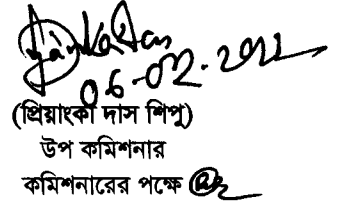 06-02-2022
(প্রিয়াংকা দাস শিপু)
উপ কমিশনার
কমিশনারের পক্ষে